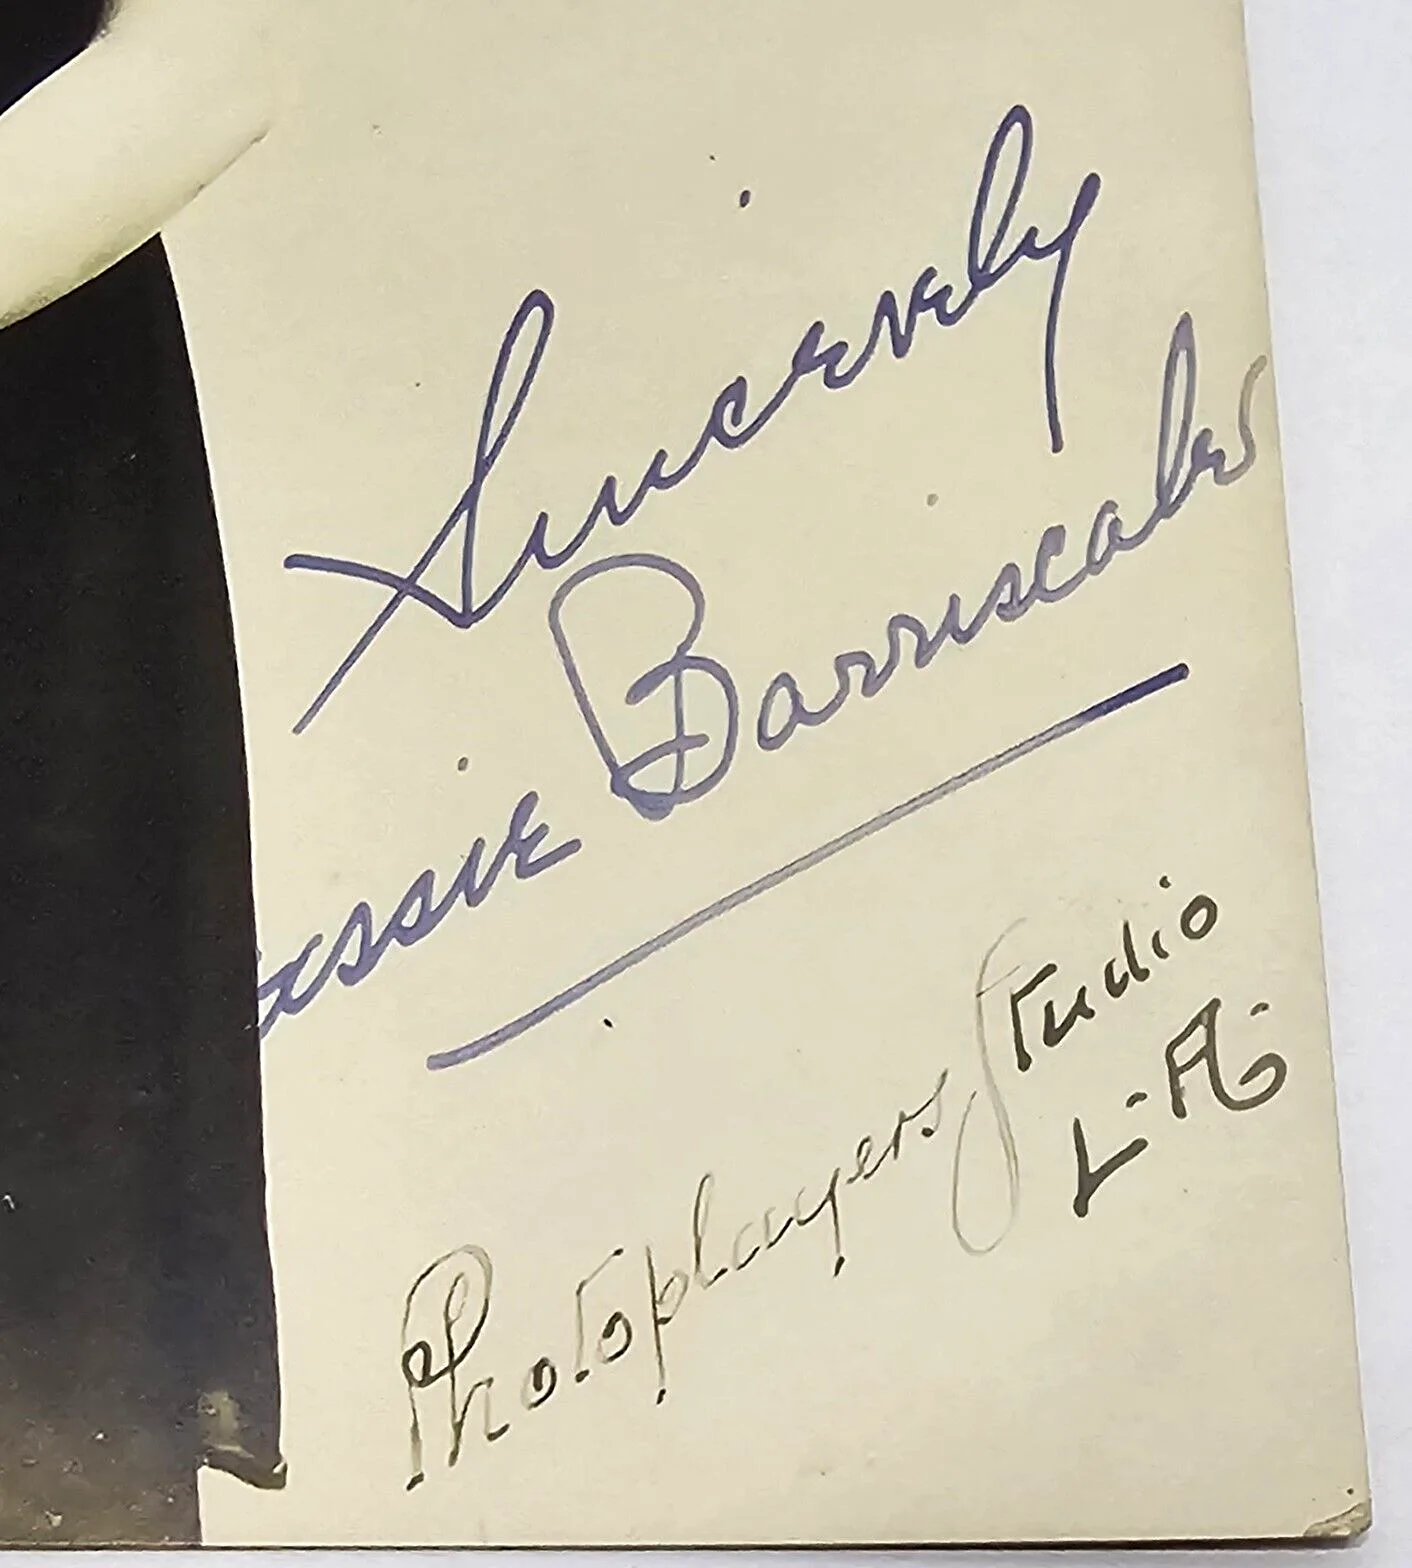 Sincerely
essie Barriscale
Photoplayers Studio
L.A.